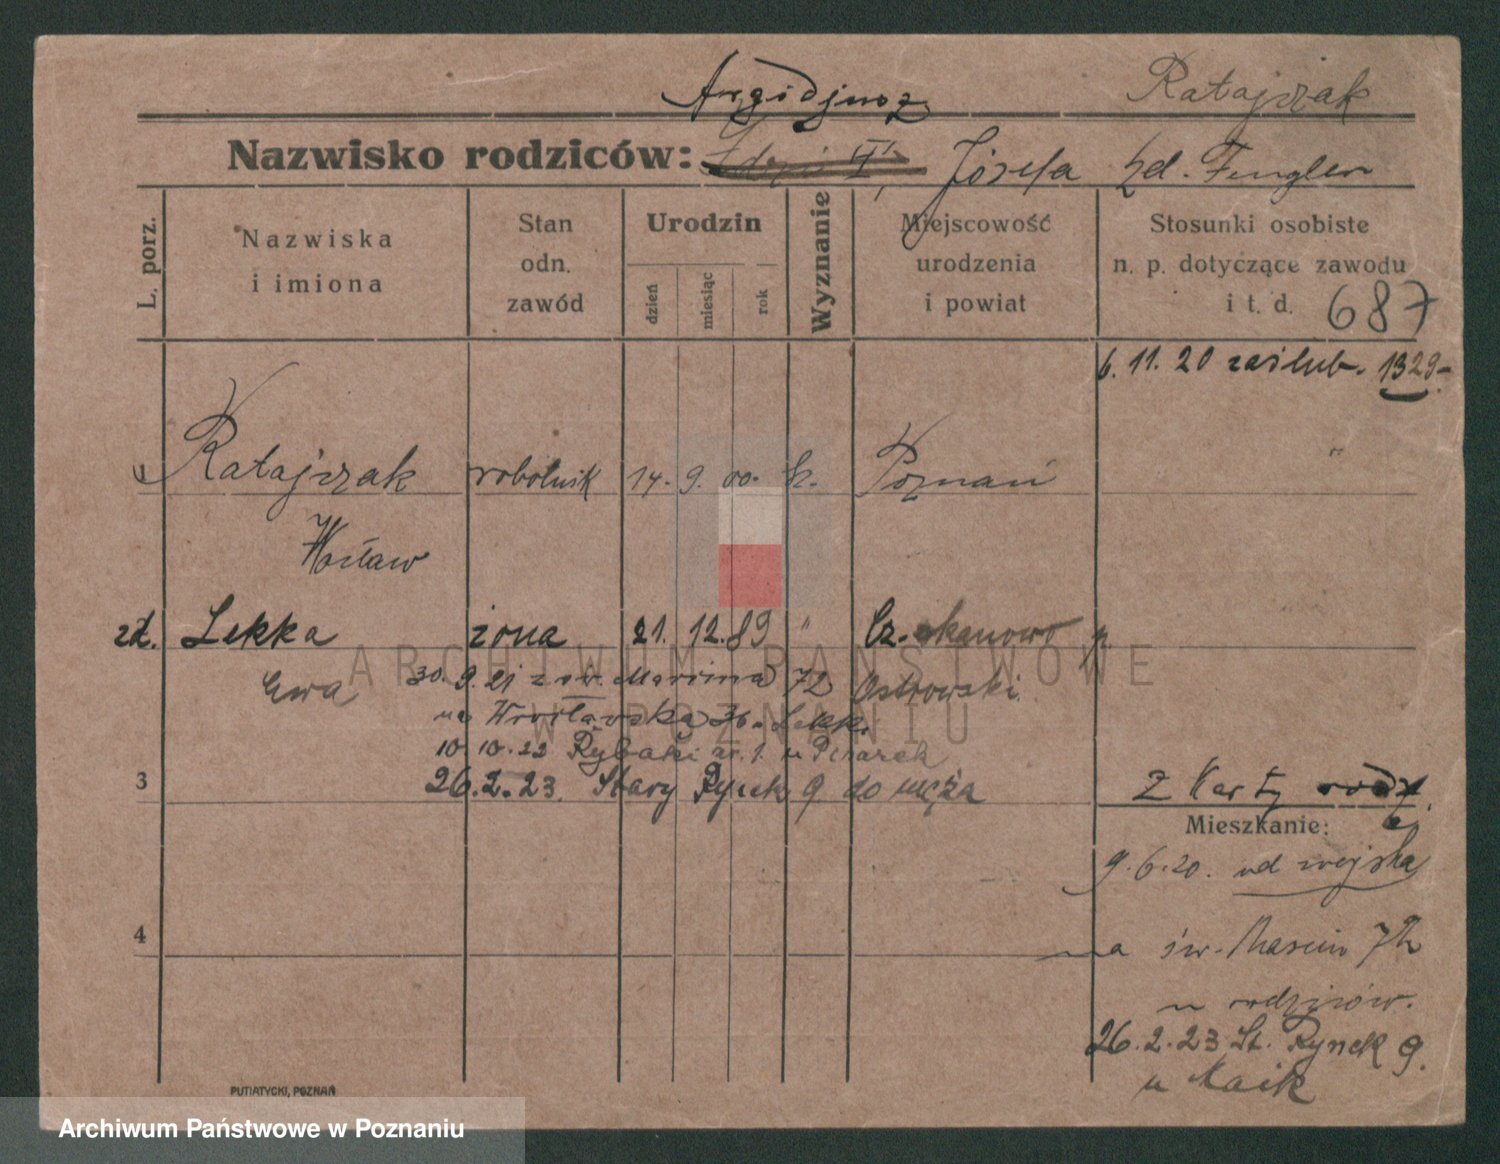 Ratajczak
Nazwisko rodziców: Józefa zd. Fengler
L. porz.
Nazwiska
i imiona
Stan
odn.
zawód
Urodzin
dzień
miesiąc
rok
Wyznanie
Miejscowość
urodzenia
i powiat
Stosunki osobiste
n. p. dotyczące zawodu
i t. d. 687
6. 11. 20 zaślub. 1329
Ratajczak robotnik 14. 9. 00. k. Poznań
Wacław
zd. Lekka żona 21. 12. 89 "
Ewa 30. 9. 21 z św. Marcina 72 Ostrowski
na Wrocławska 36.
10. 10. 22 Rybaki u Pisarek
3 26. 2. 23. Stary Rynek 9 do męża
Z Karty rodz.
Mieszkanie:
9. 6. 20. od wojska
4
na św. Marcin 72
u rodziców.
26. 2. 23 St. Rynek 9.
u Kaik
PUTIATYCKI, POZNAŃ
ARCHIWUM PAŃSTWOWE
W POZNANIU
Archiwum Państwowe w Poznaniu